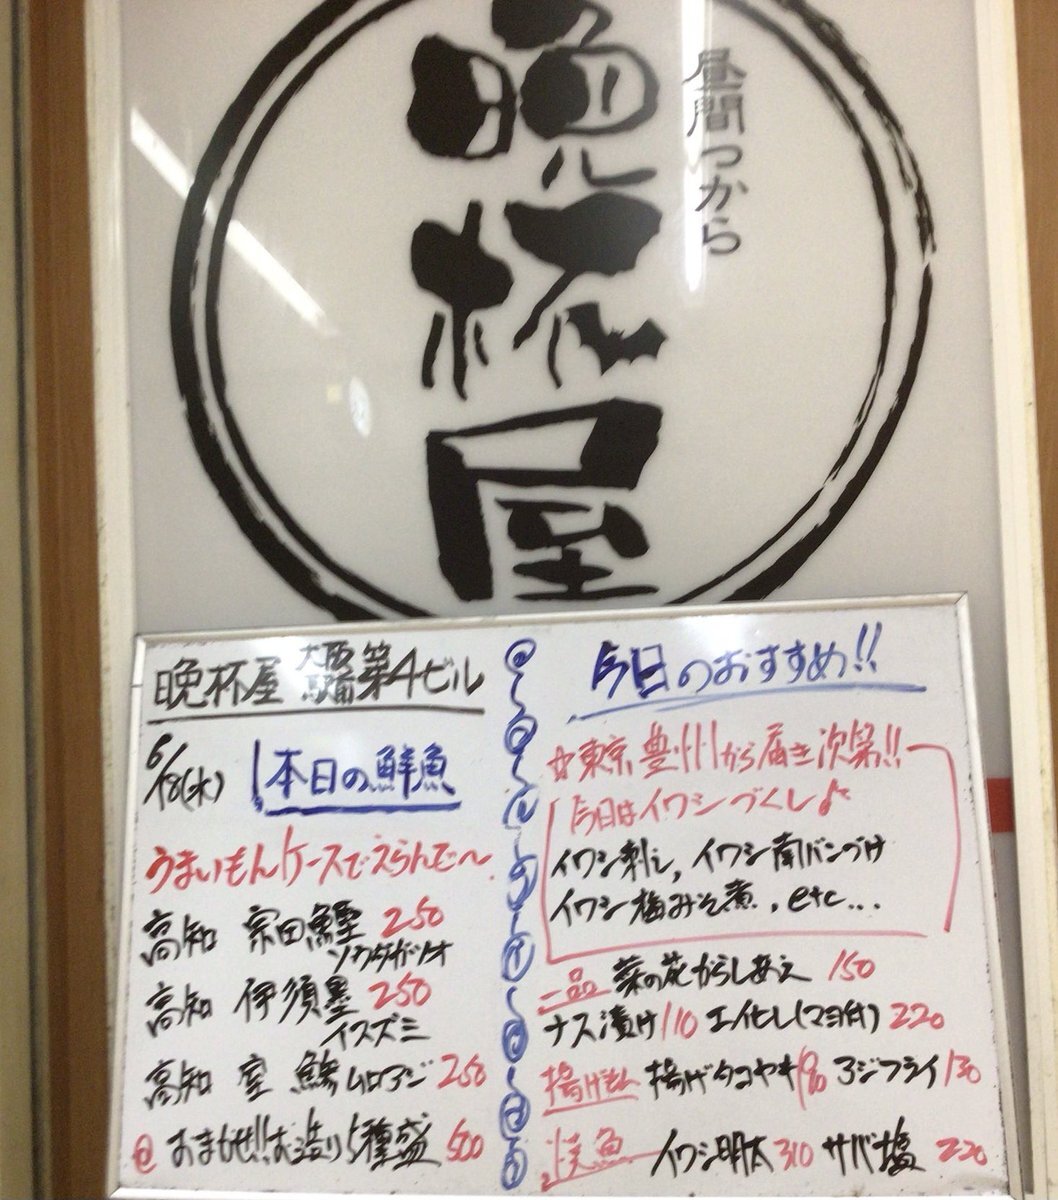 晩杯屋
昼間っから
晩杯屋 大阪駅前第4ビル
6/18(水) 本日の鮮魚
うまいもんケースでえらんで〜
高知 宗田鰹 250
ソウダガツオ
高知 伊須墨 250
イスズミ
高知 室鯵 ムロアジ 250
おまかせ!!お造り5種盛 500
今日のおすすめ!!
☆東京豊洲から届き次第!!
今日はイワシづくし♪
イワシ刺し, イワシ南バンづけ
イワシ梅みそ煮, etc...
一品 菜の花からしあえ 150
ナス漬け 110 エイヒレ(マヨ付) 220
揚げもん 揚げタコヤキ 190 アジフライ 130
焼魚 イワシ明太 310 サバ塩 220